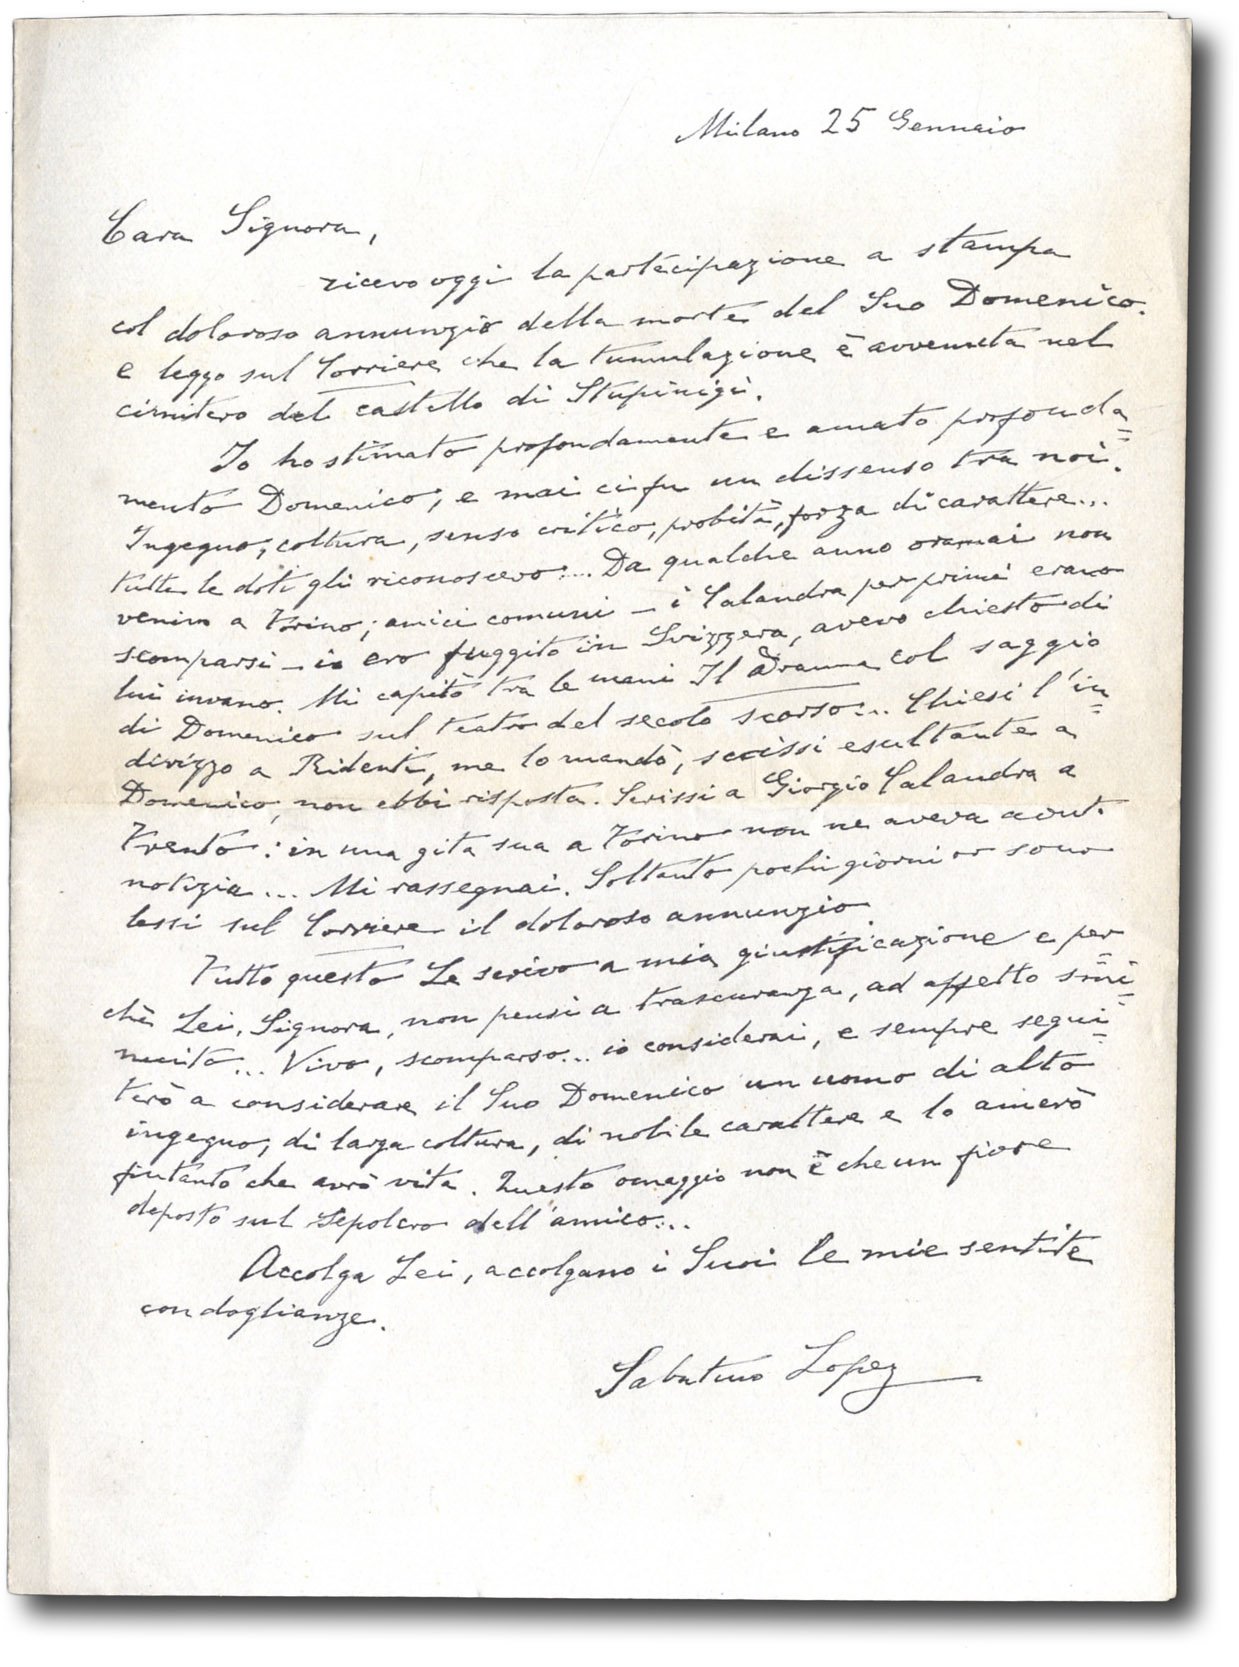 Milano 25 Gennaio
Cara Signora,
ricevo oggi la partecipazione a stampa
col doloroso annunzio della morte del Suo Domenico.
e leggo sul Corriere che la tumulazione è avvenuta nel
cimitero del castello di Stupinigi.
Io ho stimato profondamente e amato profonda=
mente Domenico, e mai ci fu un dissenso tra noi.
Ingegno, coltura, senso critico, probità, forza di carattere...
tutte le doti gli riconoscevo.... Da qualche anno oramai non
venivo a Torino; amici comuni - i Calandra per primi erano
scomparsi - io ero fuggito in Svizzera, avevo chiesto di
lui invano. Mi capitò tra le mani Il Dramma col saggio
di Domenico sul teatro del secolo scorso... Chiesi l'in=
dirizzo a Ridenti, me lo mandò, scrissi esultante a
Domenico, non ebbi risposta. Scrissi a Giorgio Calandra a
Trento: in una gita sua a Torino non ne aveva avut.
notizia... Mi rassegnai. Soltanto pochi giorni or sono
lessi sul Corriere il doloroso annunzio.
Tutto questo Le scrivo a mia giustificazione e per=
chè Lei, Signora, non pensi a trascuranza, ad affetto smi=
nuito... Vivo, scomparso... io considerai, e sempre segui=
terò a considerare il Suo Domenico un uomo di alto
ingegno, di larga coltura, di nobile carattere e lo amerò
fintanto che avrò vita. Questo omaggio non è che un fiore
deposto sul sepolcro dell'amico...
Accolga Lei, accolgano i Suoi le mie sentite
condoglianze.
Sabatino Lopez